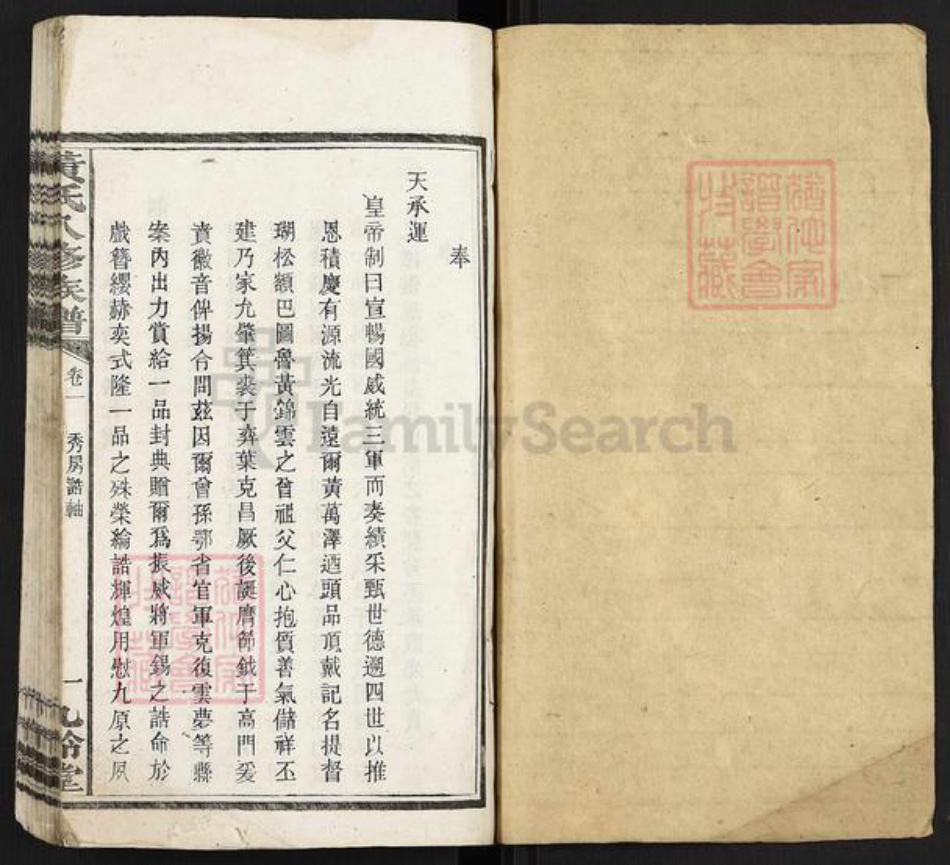 奉
天承運
皇帝制曰宣暢國威統三軍而奏績采甄世德遡四世以推
恩積慶有源流光自遠爾黃萬澤迺頭品頂戴記名提督
瑚松額巴圖魯黃錦雲之曾祖父仁心抱質善氣儲祥丕
建乃家允肇箕裘于奔葉克昌厥後誕膺節鉞于高門爰
賁徽音俾揚令問茲因爾曾孫鄂省官軍克復雲夢等縣
案內出力賞給一品封典贈爾爲振威將軍錫之誥命於
戲簪纓赫奕式隆一品之殊榮綸誥輝煌用慰九原之夙
黃氏八修族譜
卷一
秀房誥軸
一
九
堂
譜學會
收藏
FamilySearch